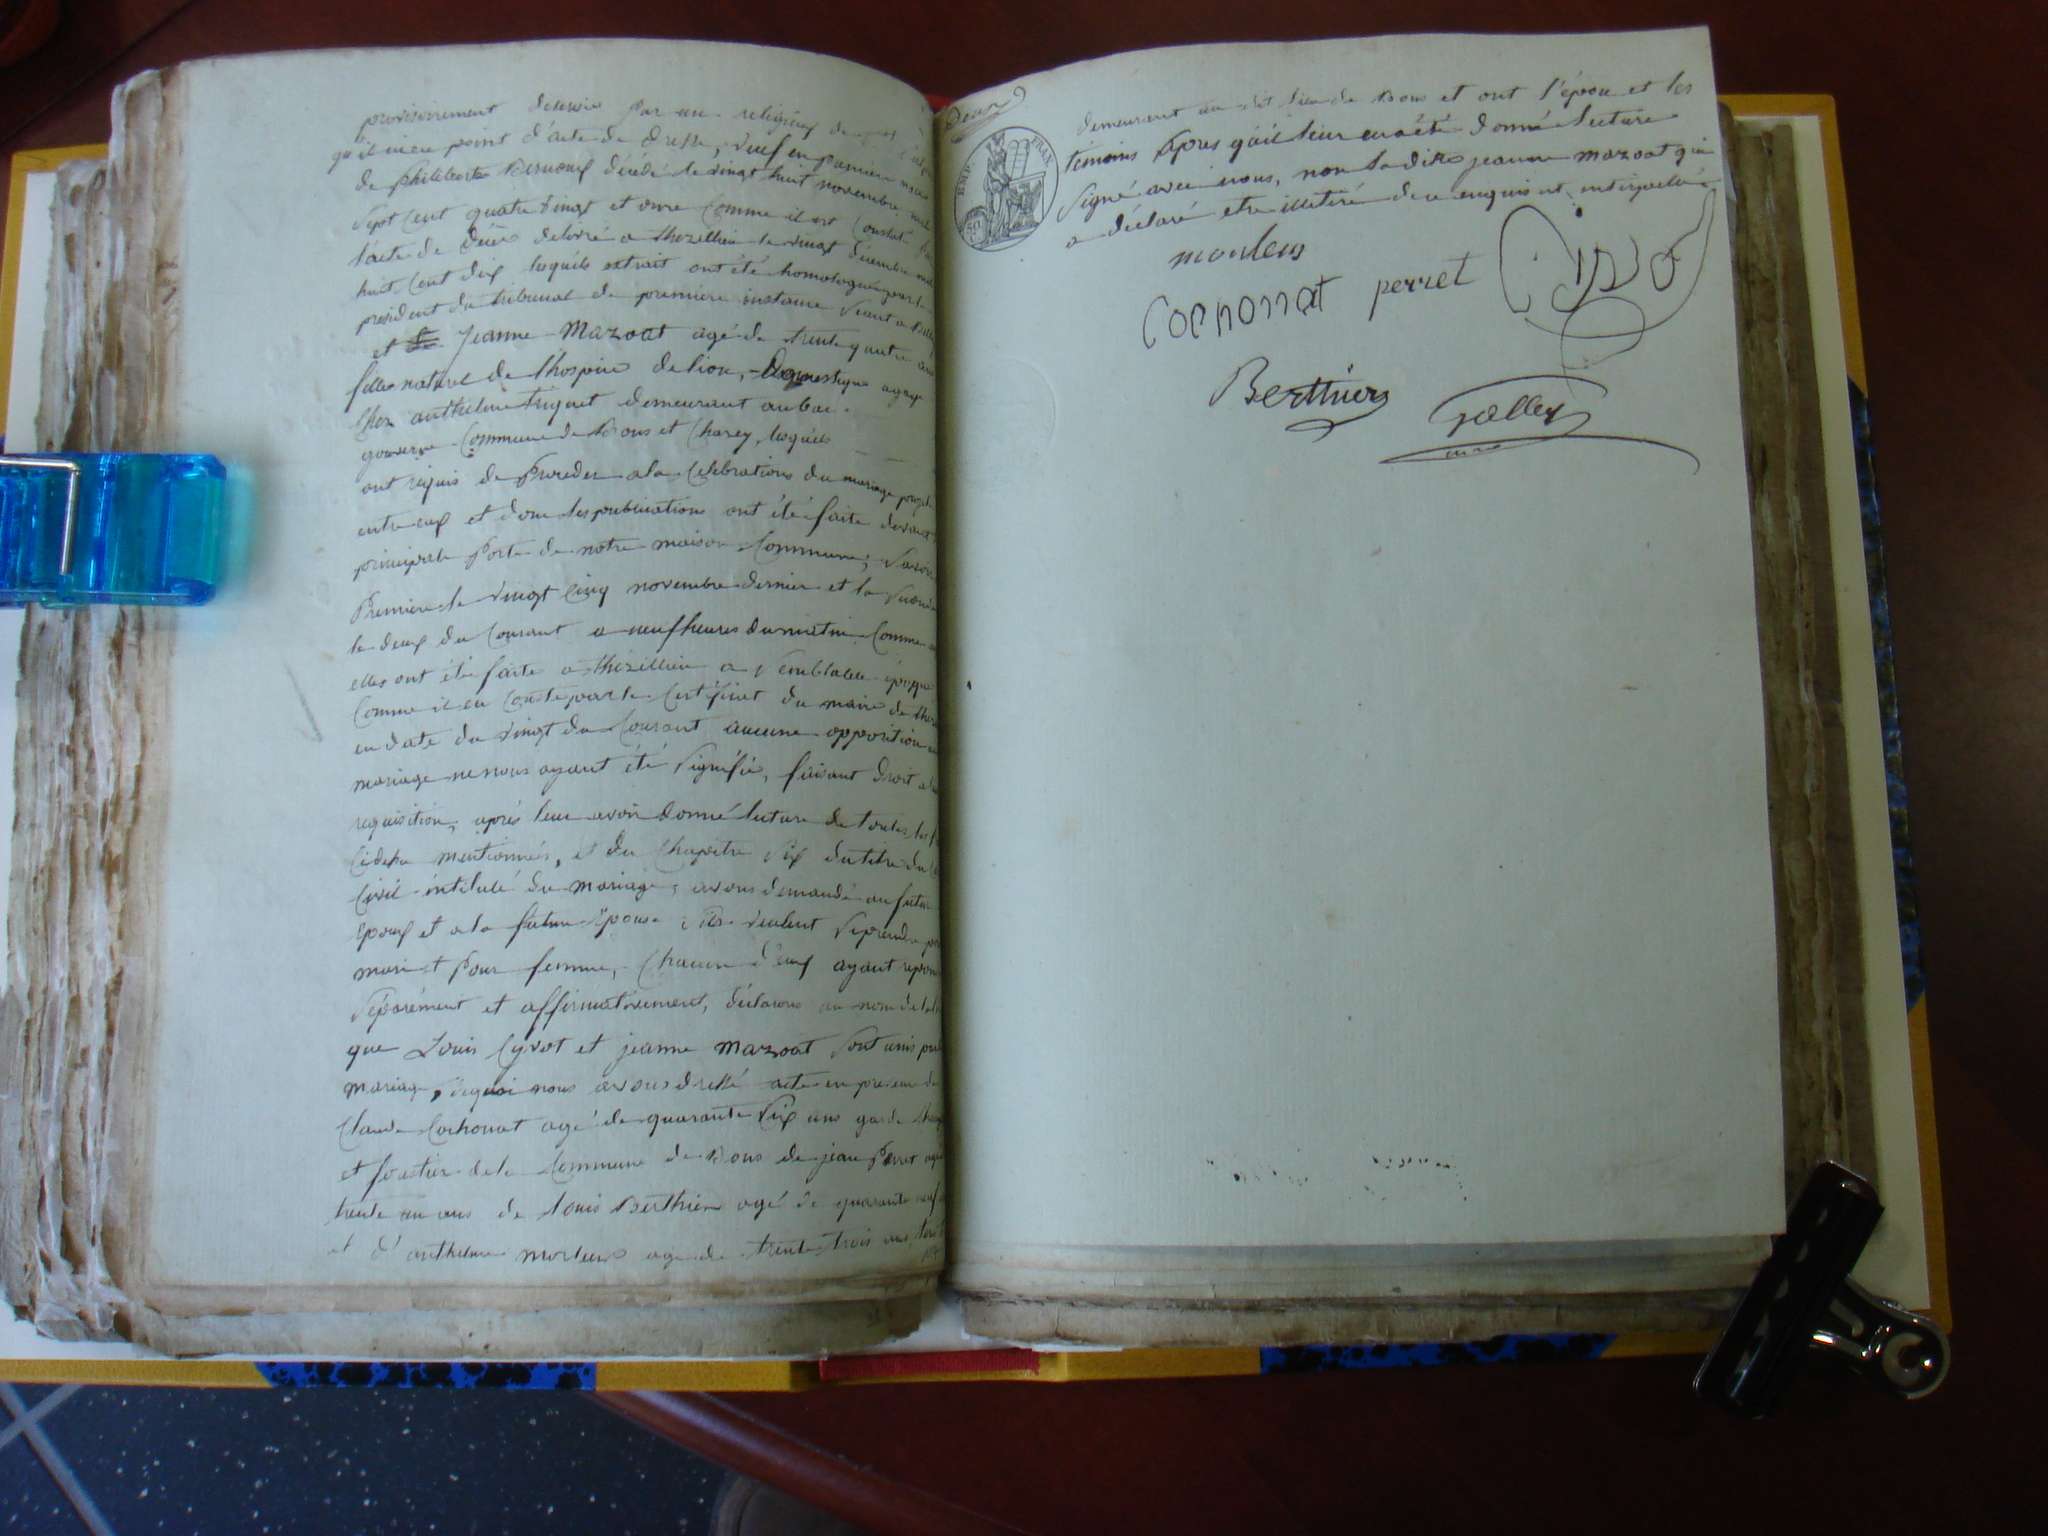 provisoirement desservie par un religieux de
qu'il n'en point d'acte de dressé, veuf en premiere noces
de philiberte Bernouf décédé le vingt huit novembre mil
Sept Cent quatre vingt et onze Comme il est Constaté par
l'acte de décès delivré a thezillieu le vingt décembre mil
huit Cent dix lesquels extrait ont été homologué par le
president du tribunal de premiere instance Séant a Belley
et Jeanne Mazoat agé de trente quatre ans
fille naturel de l'hospice de lion, Domestique
Chez anthelme triquet demeurant au bac.
Commune de Bons et Charey, lesquels
ont requis de Proceder a la Celebrations du mariage projeté
entre eux et dont les publications ont été faite devant
principale Porte de notre maison Commune, Savoir
Premiere le vingt Cinq novembre dernier et la Seconde
le deux du Courant a neuf heures du matin Comme
elles ont été faite a thezillieu a Semblable époque
Comme il en Conste par le Certificat du maire de thez
en date du vingt du Courant aucune opposition
mariage ne nous ayant été Signifié, faisant droit a
requisition, après leur avoir donné lecture de toutes les
Cidessu mentionnés, et du Chapitre Six du titre du
Civil intitulé du mariage, avons demandé au futur
Epoux et a la future Epouse S'ils veulent Se prendre
mari et Pour femme, Chacun d'eux ayant repondu
Séparément et affirmativement, déclarons au nom de la
que Louis Cyvot et jeanne mazoat Sont unis
mariage, de quoi nous avons dressé acte en presence de
Claude Cochonat agé de quarante Six ans garde
et foretier de la Commune de Bons de jean Perret
trente un ans de Louis Berthier agé de quarante neuf
et d'anthelme morlens age de trente trois ans
Deux
EMP. FRAN.
demeurant au dit lieu de Bons et ont l'époux et les
témoins Apres qu'il leur en a été donné lecture
Signé avec nous, non la dite jeanne mazoat qui
a déclaré etre illitéré de ce enquis et interpellé
morlens
Cochonat perret
Berthier Galley
maire